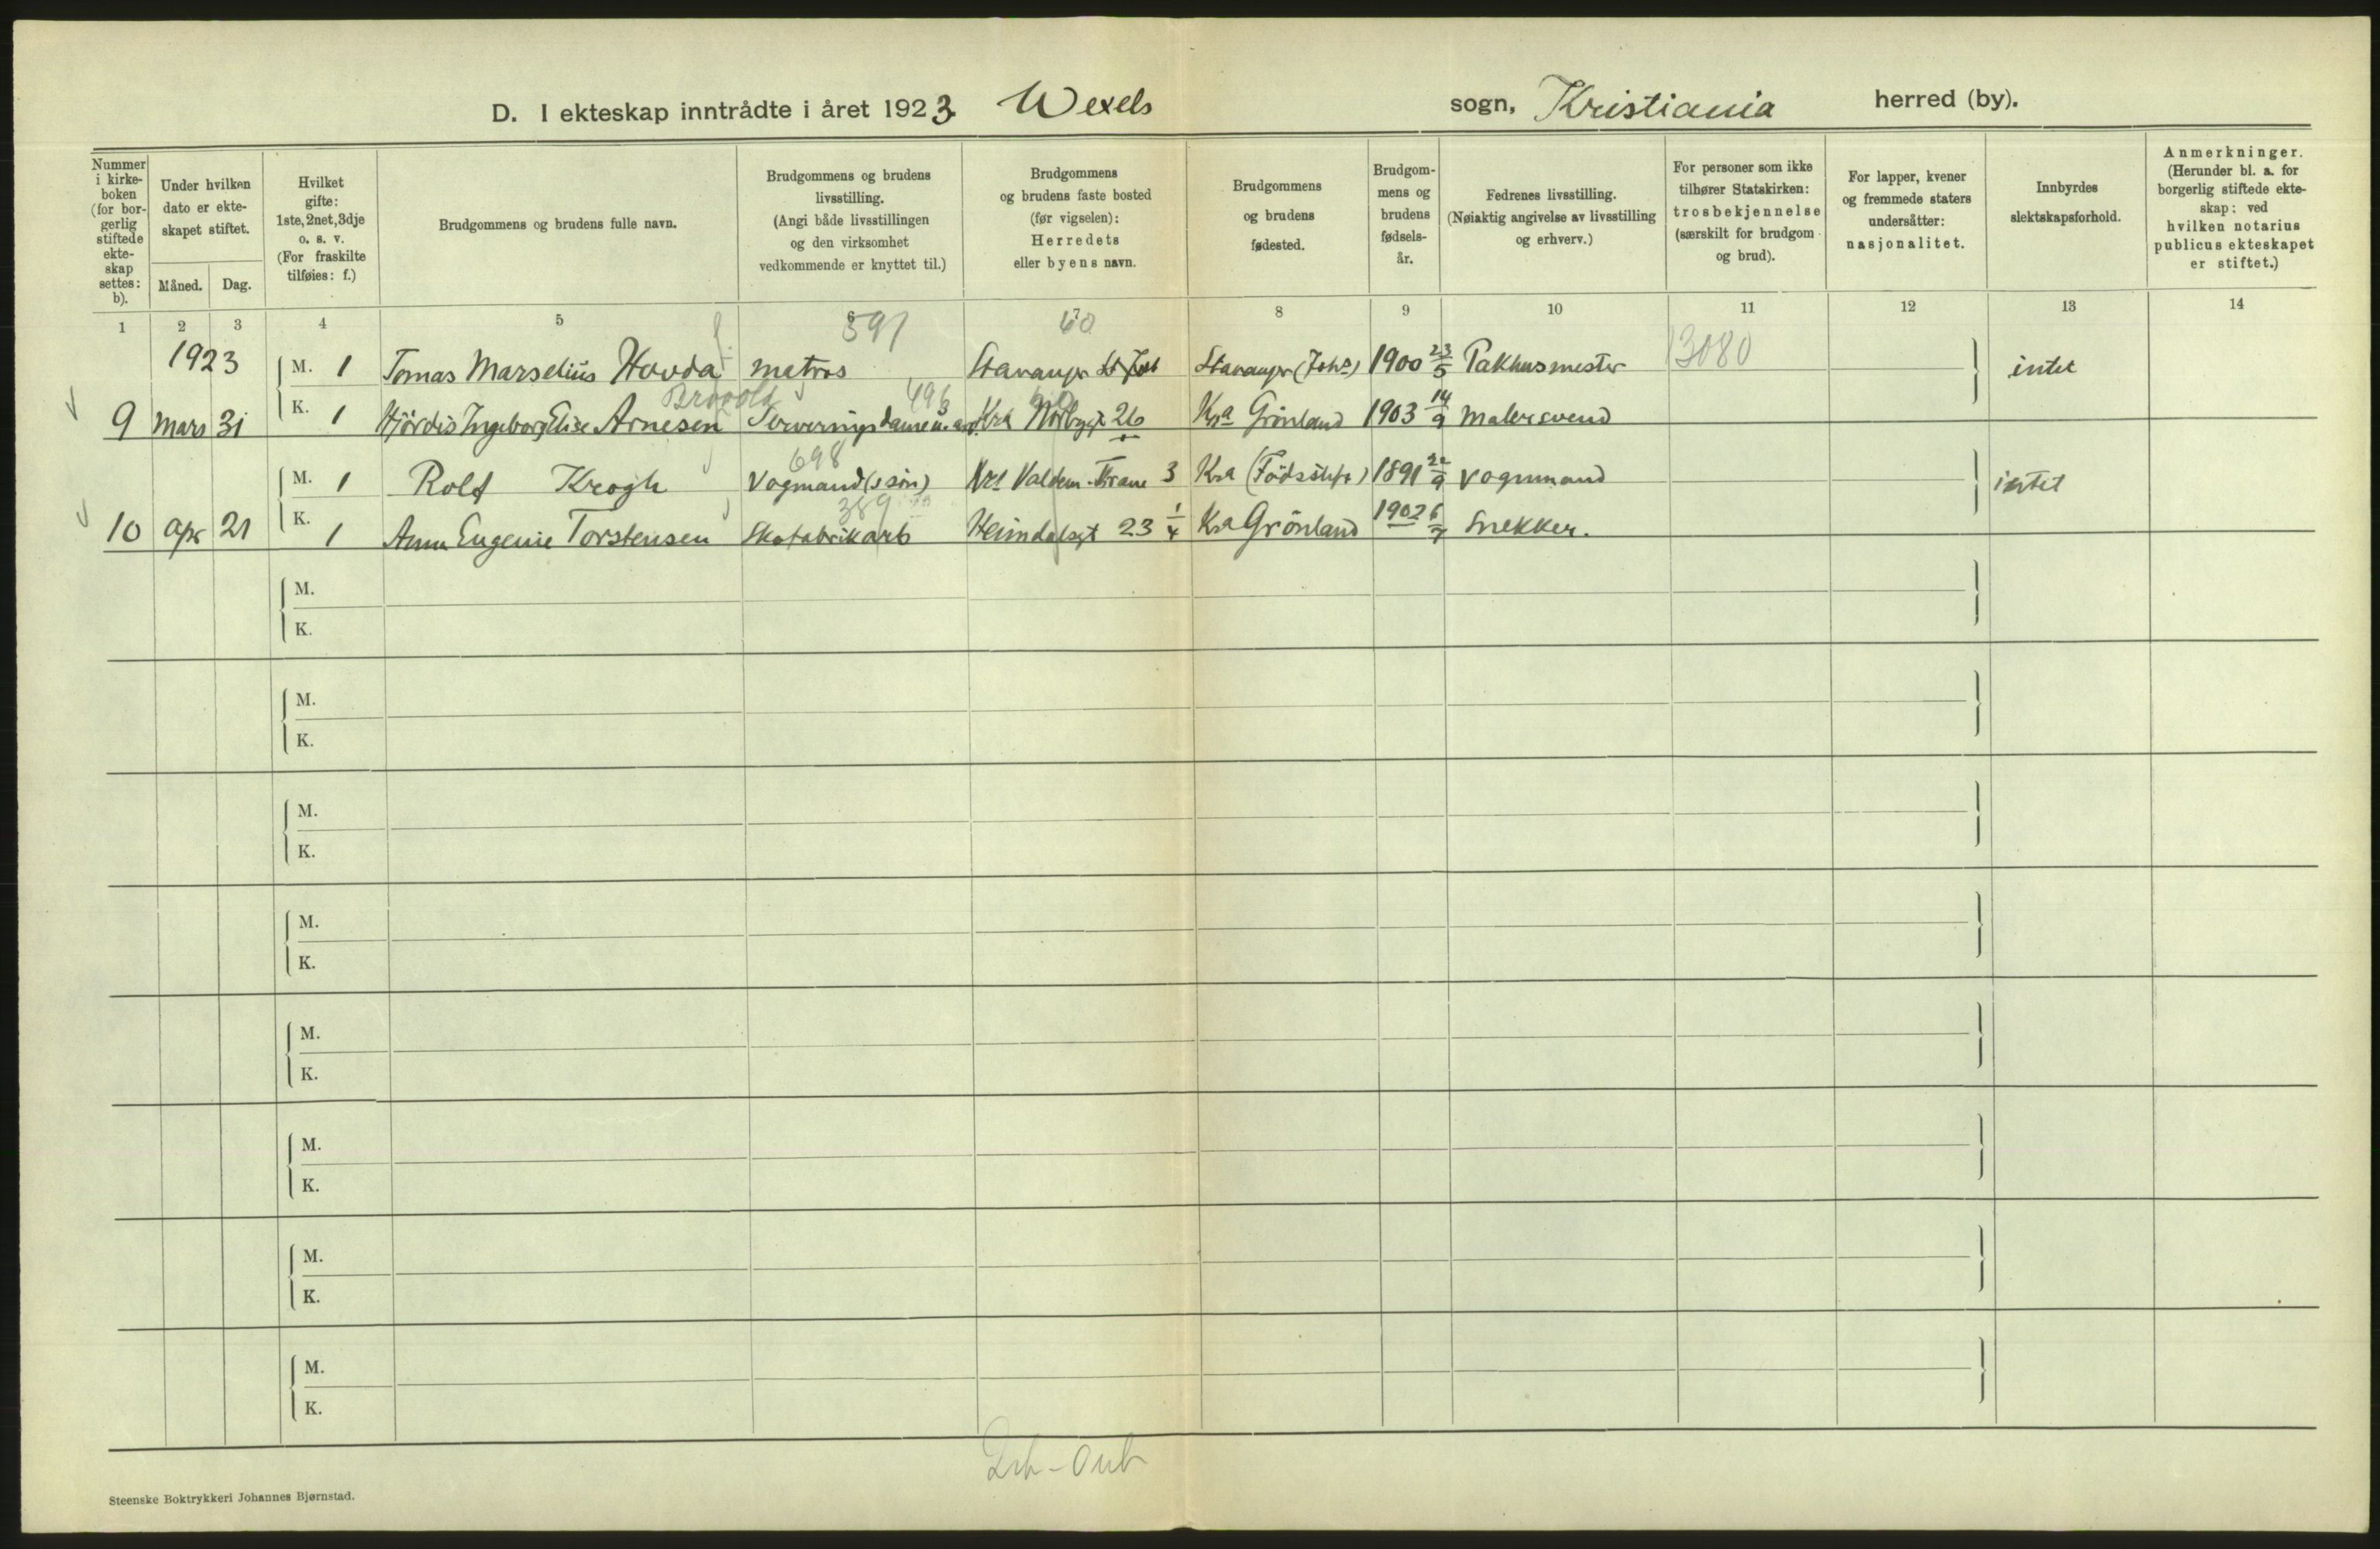 D. I ekteskap inntrådte i året 1923. Wexels sogn, Kristiania herred (by).
Nummer i kirke- boken (for bor- gerlig stiftede ekte- skap settes: b).
Under hvilken dato er ekte- skapet stiftet.
Måned. Dag.
Hvilket gifte: 1ste, 2net, 3dje o. s. v. (For fraskilte tilføies: f.)
Brudgommens og brudens fulle navn.
Brudgommens og brudens livsstilling. (Angi både livsstillingen og den virksomhet vedkommende er knyttet til.)
Brudgommens og brudens faste bosted (før vigselen): Herredets eller byens navn.
Brudgommens og brudens fødested.
Brudgom- mens og brudens fødsels- år.
Fedrenes livsstilling. (Nøiaktig angivelse av livsstilling og erhverv.)
For personer som ikke tilhører Statskirken: trosbekjennelse (særskilt for brudgom og brud).
For lapper, kvener og fremmede staters undersåtter: nasjonalitet.
Innbyrdes slektskapsforhold.
Anmerkninger. (Herunder bl. a. for borgerlig stiftede ekte- skap: ved hvilken notarius publicus ekteskapet er stiftet.)
1 2 3 4 5 6 7 8 9 10 11 12 13 14
591 60
1923 M. 1 Tomas Marselius Hovda matros Stavanger Stavanger (Joh's) 1900 23/5 Pakhusmester 13080 intet
496
9 Mars 31 K. 1 Hjördis Ingeborg Elise Arnesen Serveringsdame Kra Norbygt 26 Kra Grönland 1903 14/9 Malersvend
698
M. 1 Rolf Krogh Vogmand (s søn) Kra Valdem. Thrane 3 Kra (Födsstift) 1891 20/9 Vognmand intet
389
10 Apr 21 K. 1 Anna Eugenie Torstensen Skofabrikarb Heimdalsgt 23 1/4 Kra Grönland 1902 6/7 Snekker.
M.
K.
M.
K.
M.
K.
M.
K.
M.
K.
M.
K.
M.
K.
M.
K.
Steenske Boktrykkeri Johannes Bjørnstad.